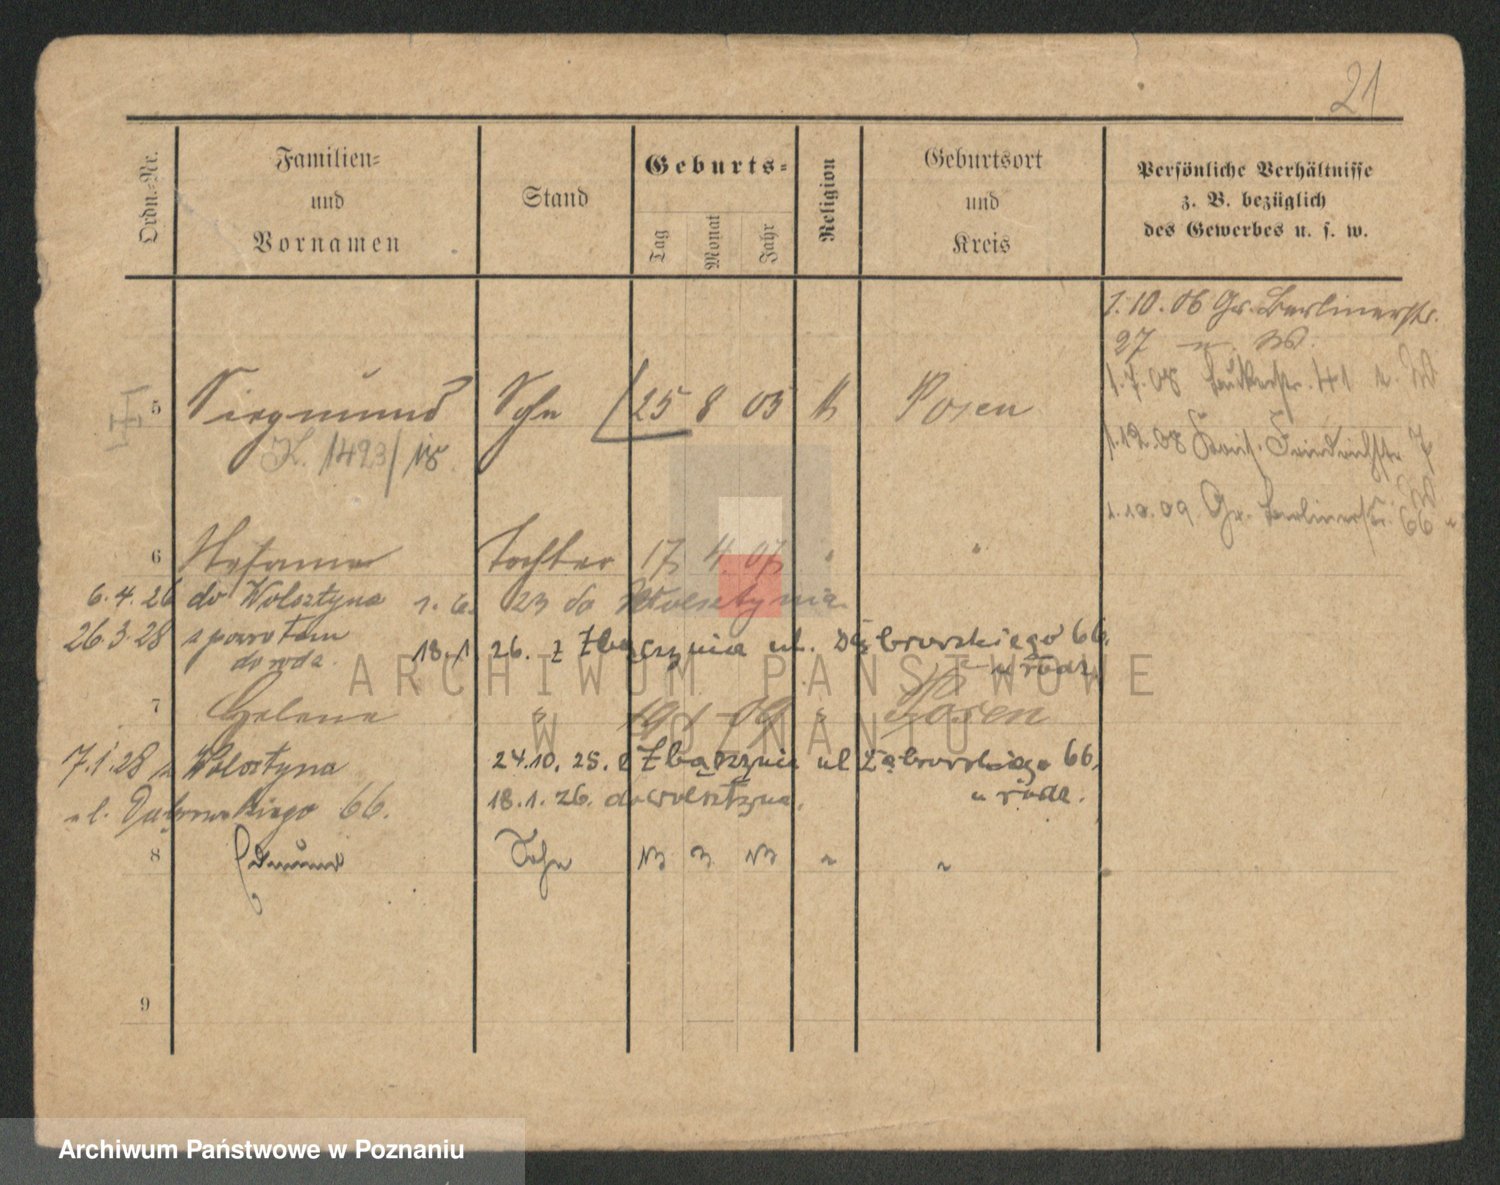 21
Ordn.=Nr.
Familien=
und
Vornamen
Stand
Geburts=
Tag
Monat
Jahr
Religion
Geburtsort
und
Kreis
Persönliche Verhältnisse
z. B. bezüglich
des Gewerbes u. s. w.
1.10.06 Gr. Berlinerstr.
27
1.7.08 41
5 Siegmund Sohn 25 8 05 k Posen
K. 1423/18
1.12.08 Friedrichstr. 7
1.10.09 Gr. Berlinerstr. 66
6 Stefanie Tochter 17 4 07 "
6.4.26 do Wolsztyna 1.6. 23 do Wolsztynia
26.3.28 z powrotem 18.1. 26. z Zbąszynia ul. Dąbrowskiego 66,
do roda. u rodz.
7 Helene " 19 1 09 " Posen
7.1.28 z Wolsztyna 24.10.25. z Zbąszynia ul Dąbrowskiego 66,
ul. Dąbrowskiego 66. 18.1.26. do Wolsztyna. u rodz.
8 Edmund Sohn 13 3 13 " "
9
ARCHIWUM PAŃSTWOWE
W POZNANIU
Archiwum Państwowe w Poznaniu